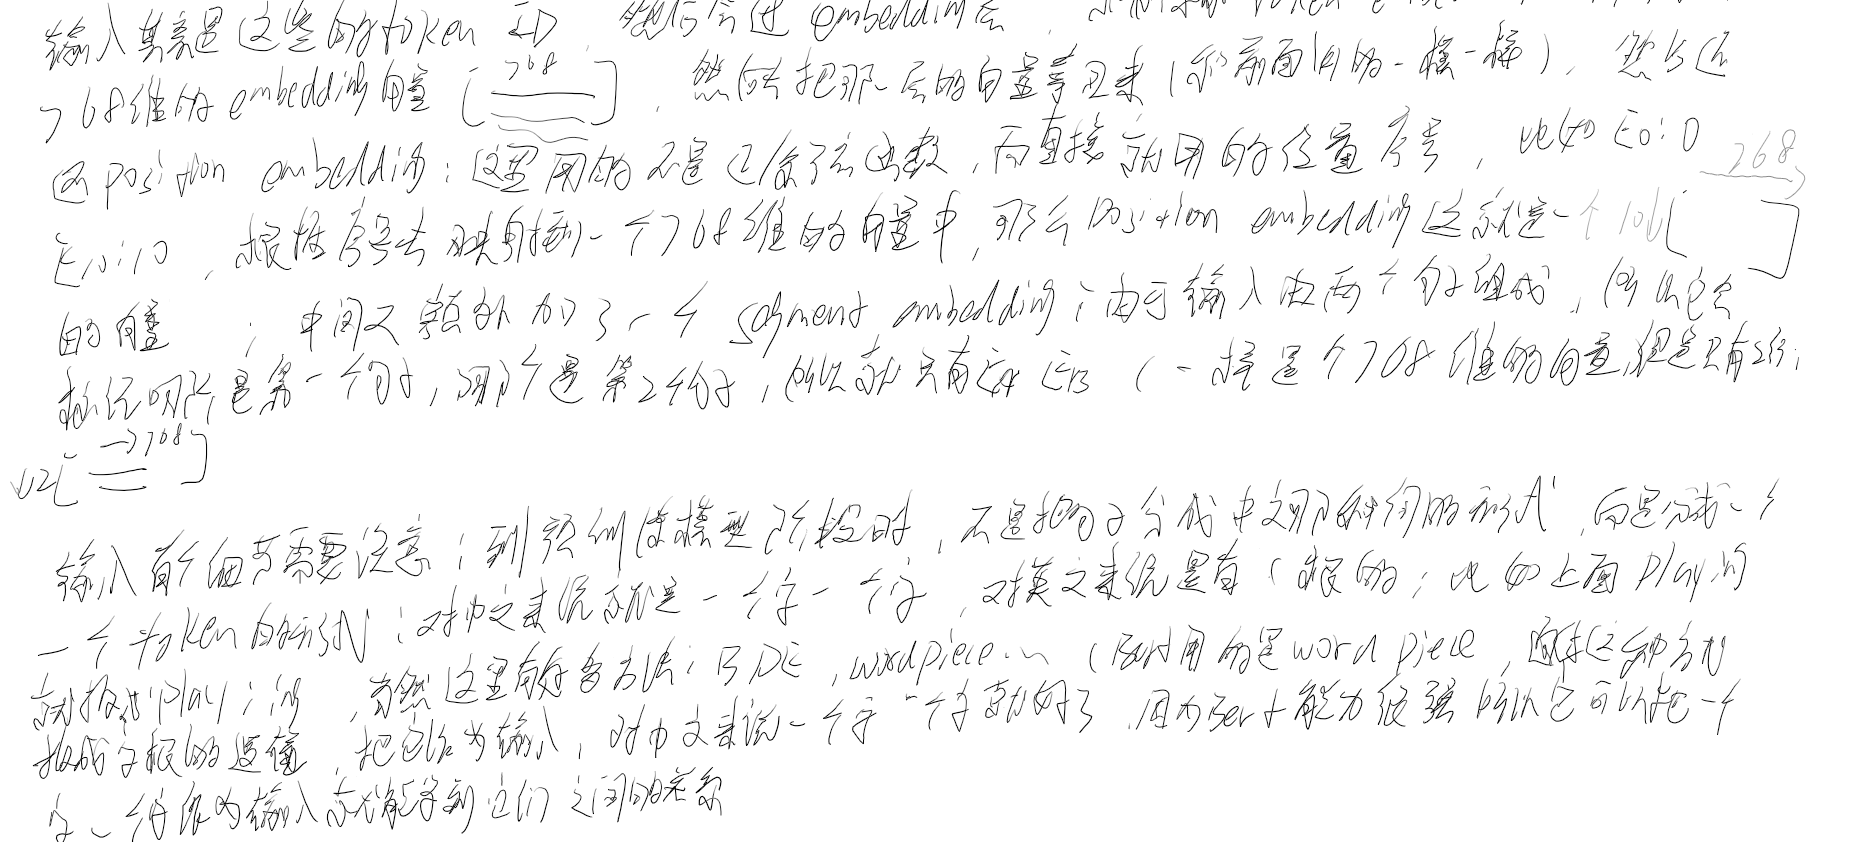 输入其实是这些的token ID,然后会进embedding层,
768维的embedding向量[768],然后去把那一层的向量拿出来(和前面讲的一模一样),然后还
positon embedding:这里用的不是正余弦函数,而直接就用的位置序号,比如E0:0 768
E10:10,根据序号去映射到一个768维的向量中,那么Position embedding这就是一个 [ ]
的向量;中间又额外加了一个segment embedding;由于输入由两个句子组成,所以它会
标记哪个是第一个句子,哪个是第2个句子,所以就只有EA EB(一样是个768维的向量,但是只有2行;
↓2[→768]
输入有个细节需要注意;到预训练模型阶段时,不是把句子分成中文那种词的形式,而是分成一个
一个token的形式;对中文来说就是一个字一个字,对英文来说是有词根的;比如上面Playing
就拆成play;ing,当然这里有好多方法;BPE,wordpiece...(Bert用的是word piece,通过这种方式
拆成字根的逻辑,把它作为输入,对中文来说一个字一个字就好了,因为Bert能力很强所以它可以把一个
字一个字作为输入就能学到它们之间的关系